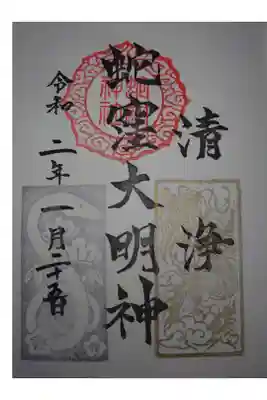 清
浄
蛇窪大明神
令和二年一月二十五日